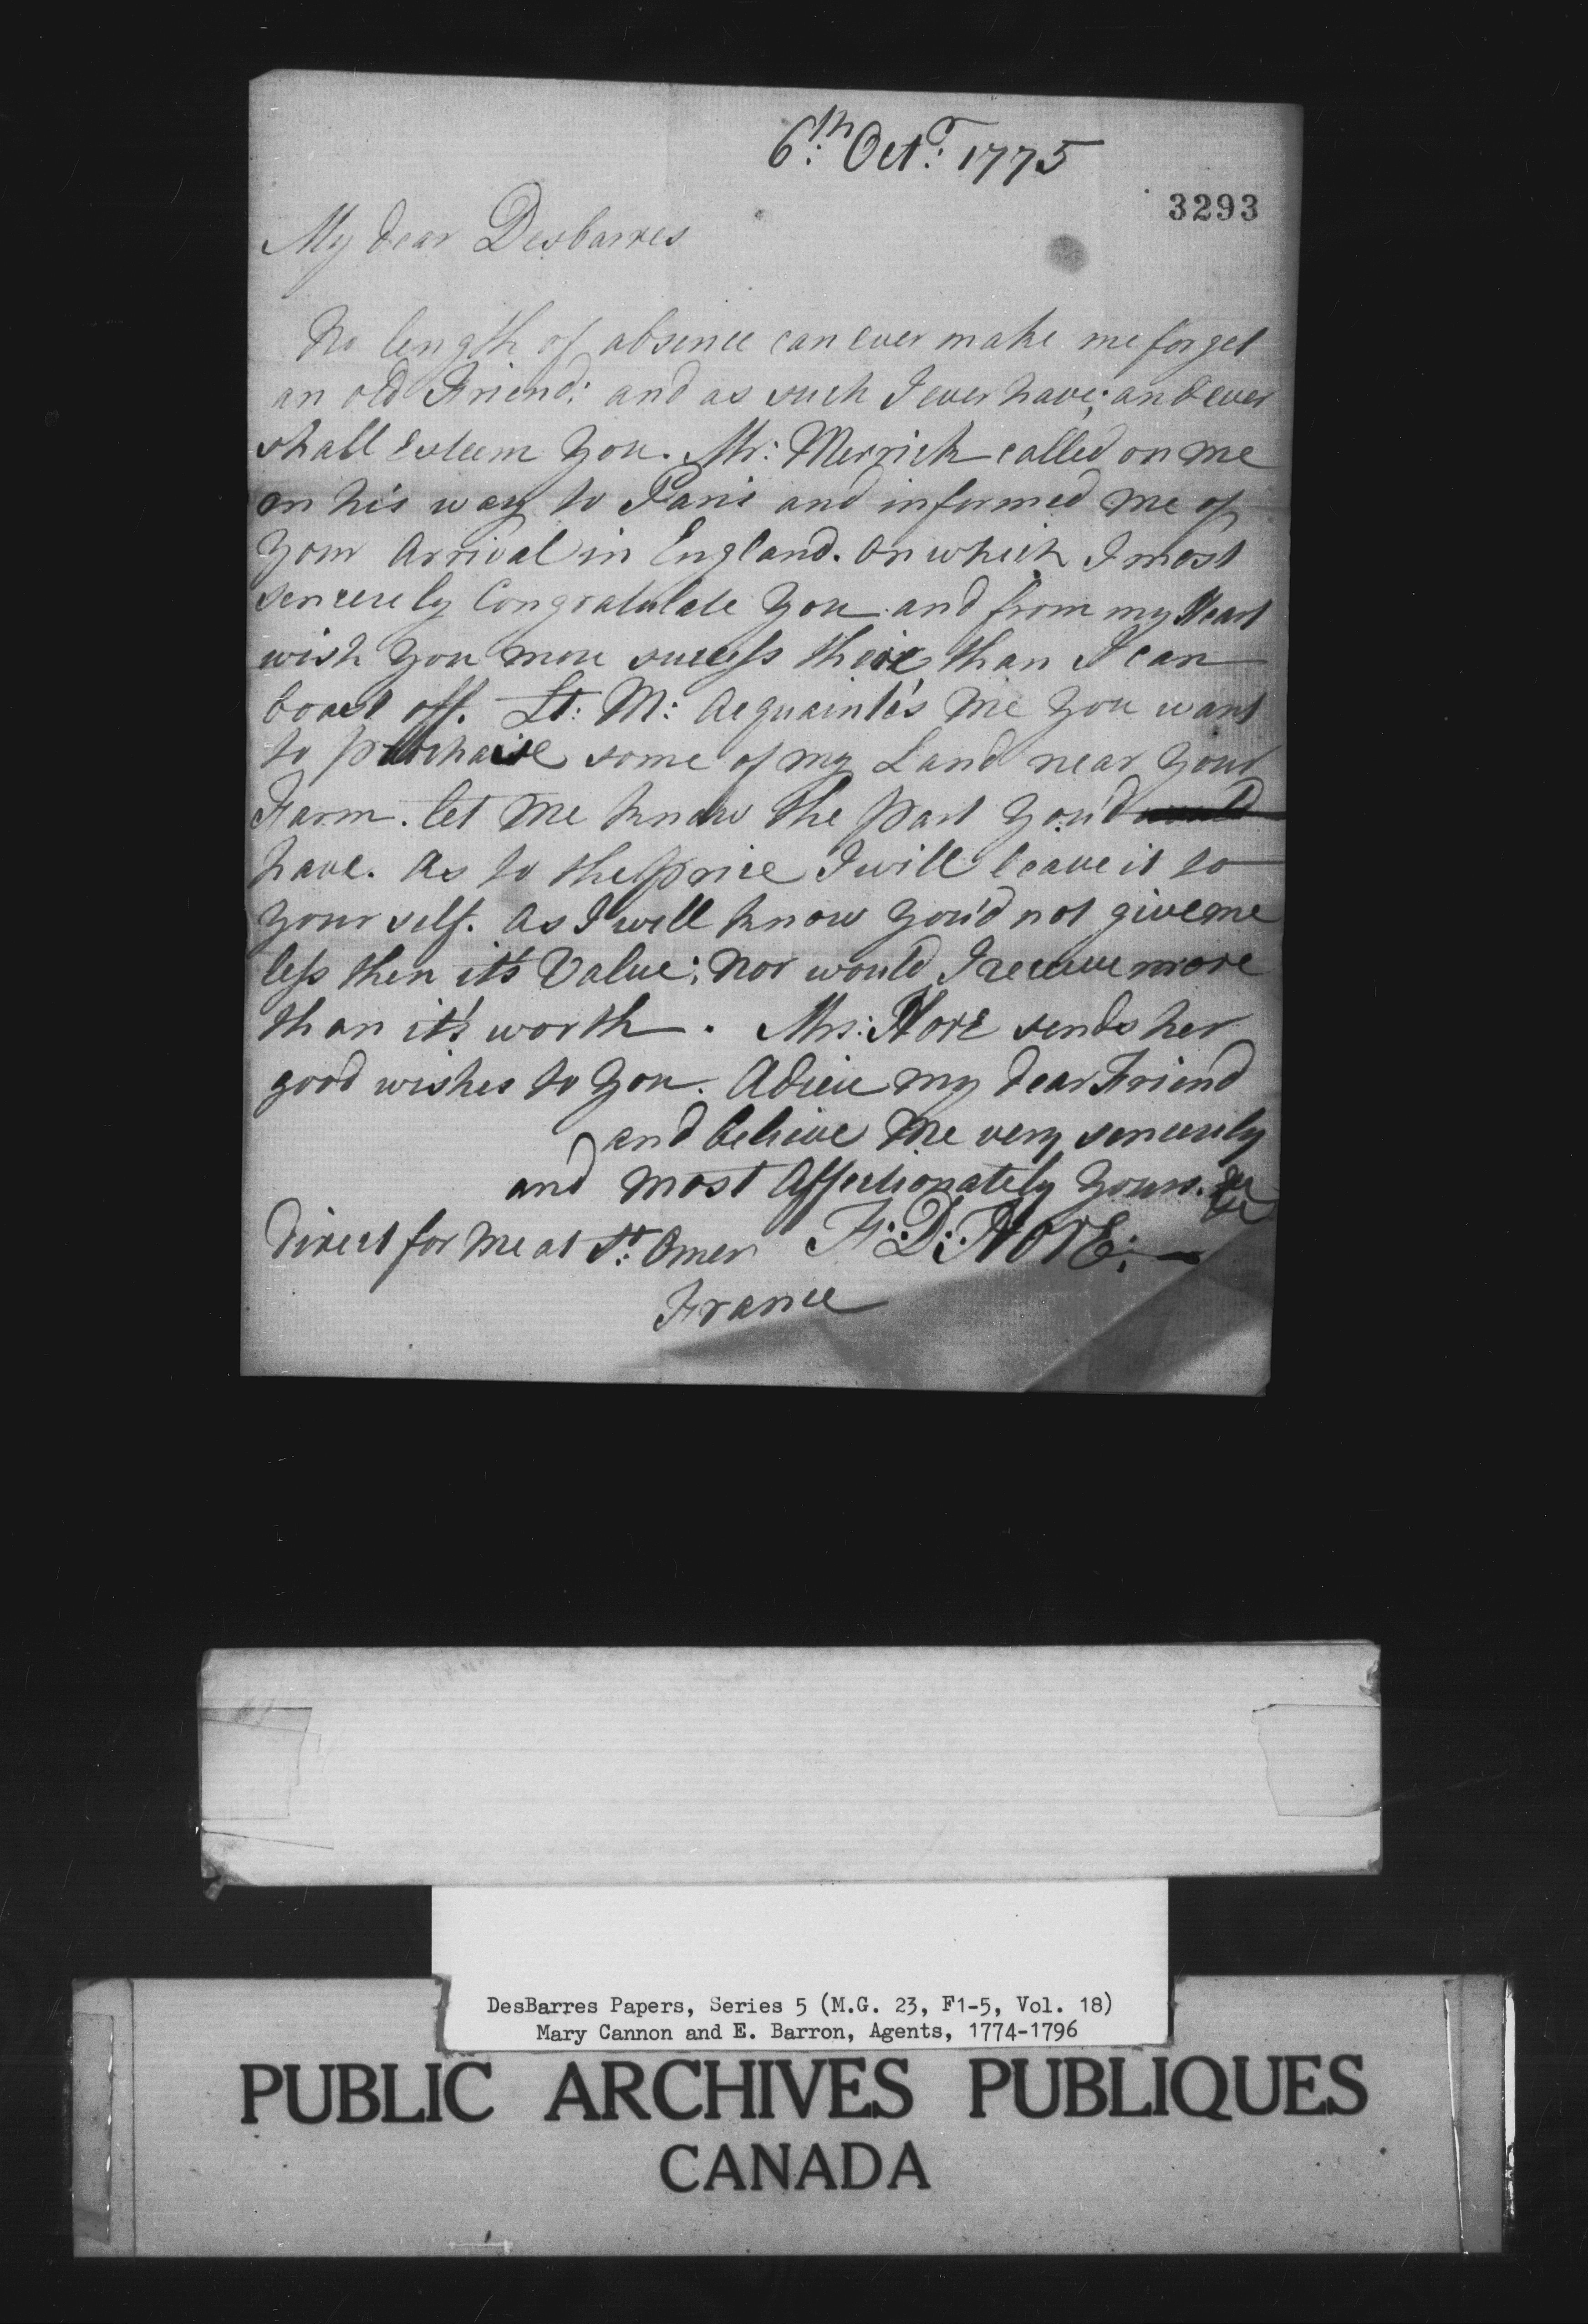 6th: Octr: 1775
3293
My dear Desbarres
No length of absence can ever make me forget
an old Friend: and as such I ever have; and ever
shall esteem you. Mr: Merrick called on me
on his way to Paris and informed me of
your arrival in England. on which I most
sencerely Congratulate you and from my Heart
wish you more success there than I can
boast off. Lt: M: acquainte's me you want
to purchaise some of my Land near your
Farm. let me know the part you'd would
have. as to the price I will leave it to
your self. as I well know you'd not give me
less then it's Value; nor would I receive more
than it's worth. Mrs: Hore sends her
good wishes to you. Adieu my dear Friend
and believe me very sencerely
and most affectionately yours. &c
Direct for me at St: Omer F: D: HORE:
France
DesBarres Papers, Series 5 (M.G. 23, F1-5, Vol. 18)
Mary Cannon and E. Barron, Agents, 1774-1796
PUBLIC ARCHIVES PUBLIQUES
CANADA